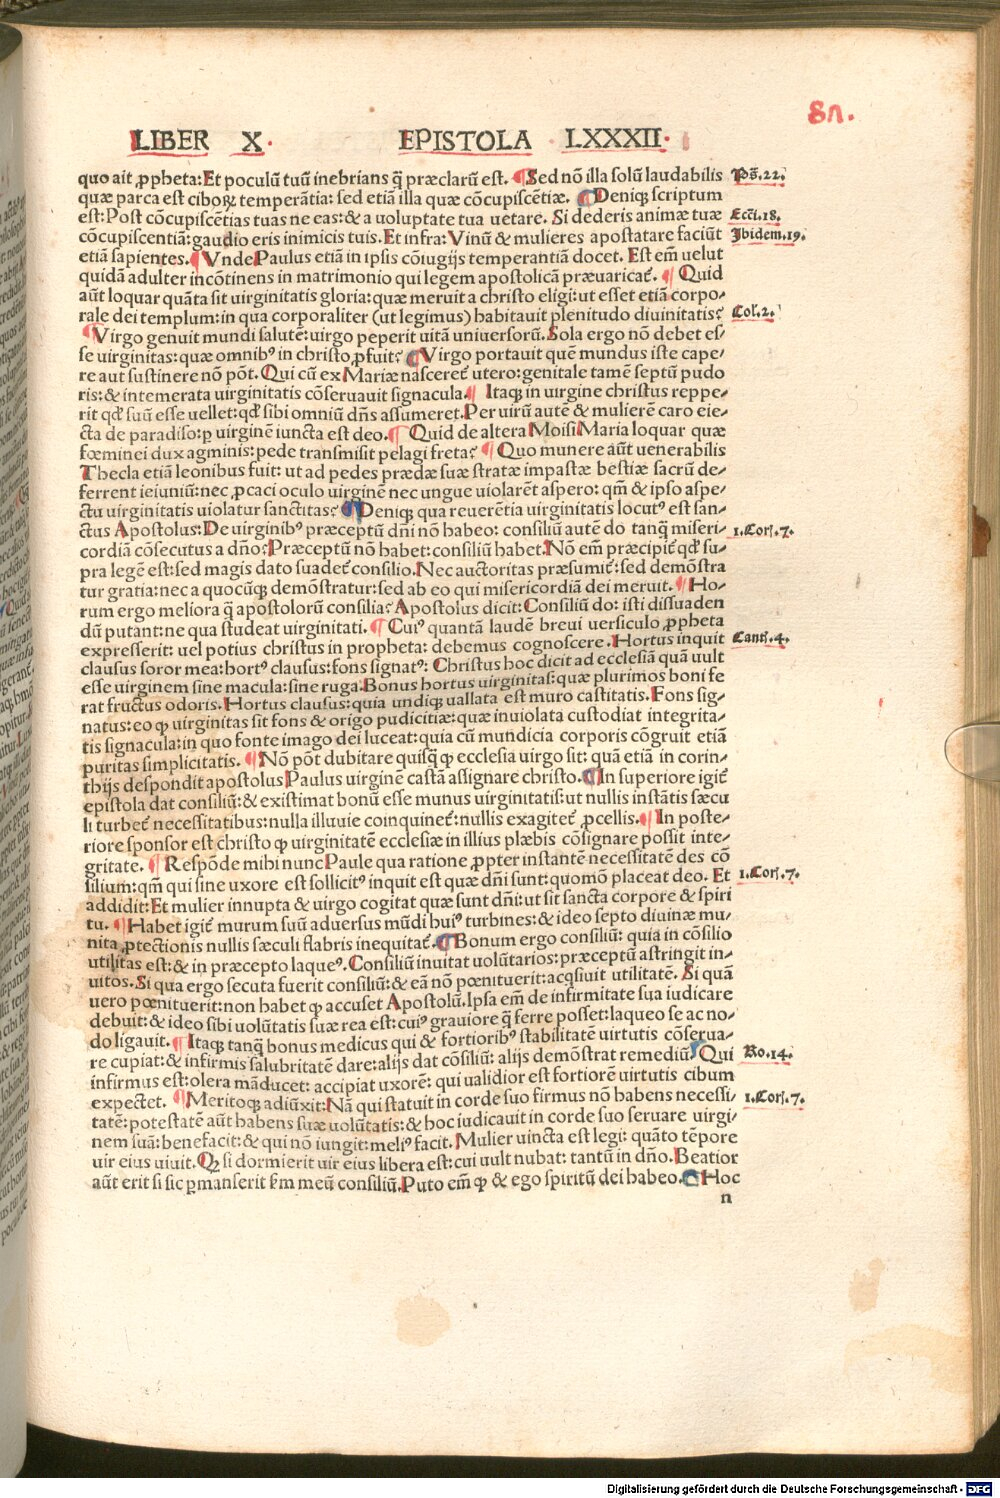 81.
LIBER X. EPISTOLA LXXXII.
quo ait ꝓpheta: Et poculū tuū inebrians q̄ præclarū est. ¶ Sed nō illa solū laudabilis Ps̄.22.
quæ parca est ciboꝝ temperātia: sed etiā illa quæ cōcupiscētiæ. ¶ Deniqꝫ scriptum
est: Post cōcupiscētias tuas ne eas: & a uoluptate tua uetare. Si dederis animæ tuæ Eccī.18.
cōcupiscentiā: gaudio eris inimicis tuis. Et infra: Vinū & mulieres apostatare faciūt Ibidem.19.
etiā sapientes. ¶ Vnde Paulus etiā in ipsis cōiugijs temperantiā docet. Est em̄ uelut
quidā adulter incōtinens in matrimonio qui legem apostolicā præuaricat̄. ¶ Quid
aūt loquar quāta sit virginitatis gloria: quæ meruit a christo eligi: ut esset etiā corpo-
rale dei templum: in qua corporaliter (ut legimus) habitauit plenitudo diuinitatis? Col.2.
¶ Virgo genuit mundi salutē: uirgo peperit uitā uniuersorū. Sola ergo nō debet es-
se uirginitas: quæ omnibꝰ in christo ꝓfuit? ¶ Virgo portauit quē mundus iste cape-
re aut sustinere nō pōt. Qui cū ex Mariæ nasceret̄ utero: genitale tamē septū pudo
ris: & intemerata uirginitatis cōseruauit signacula. ¶ Itaqꝫ in uirgine christus reppe-
rit qd̄ suū esse uellet: qd̄ sibi omniū dn̄s assumeret. Per uirū autē & mulierē caro eie-
cta de paradiso: ꝑ uirginē iuncta est deo. ¶ Quid de altera Moisi Maria loquar quæ
fœminei dux agminis: pede transmisit pelagi freta? ¶ Quo munere aūt uenerabilis
Thecla etiā leonibus fuit: ut ad pedes prædæ suæ stratæ impastæ bestiæ sacrū de-
ferrent ieiuniū: nec ꝓcaci oculo uirginē nec ungue uiolarēt aspero: qm̄ & ipso aspe-
ctu uirginitatis uiolatur sanctitas? ¶ Deniqꝫ qua reuerētia uirginitatis locutꝰ est san-
ctus Apostolus: De uirginibꝰ præceptū dn̄i nō habeo: consiliū autē do tanq̄ miseri- 1.Cor.7.
cordiā cōsecutus a dn̄o? Præceptū nō habet: consiliū habet. Nō em̄ præcipit̄ qd̄ su-
pra legē est: sed magis dato suadet̄ consilio. Nec auctoritas præsumit̄: sed demōstra
tur gratia: nec a quocūqꝫ demōstratur: sed ab eo qui misericordiā dei meruit. ¶ Ho-
rum ergo meliora q̄ apostolorū consilia? Apostolus dicit: Consiliū do: isti dissuaden
dū putant: ne qua studeat uirginitati. ¶ Cuiꝰ quantā laudē breui uersiculo ꝓpheta
expresserit: uel potius christus in propheta: debemus cognoscere. Hortus inquit Cant.4.
clausus soror mea: hortꝰ clausus: fons signatꝰ: Christus hoc dicit ad ecclesiā quā uult
esse uirginem sine macula: sine ruga. Bonus hortus uirginitas: quæ plurimos boni fe
rat fructus odoris. Hortus clausus: quia undiqꝫ uallata est muro castitatis. Fons sig-
natus: eo ꝙ uirginitas sit fons & origo pudicitiæ: quæ inuiolata custodiat integrita-
tis signacula: in quo fonte imago dei luceat: quia cū mundicia corporis cōgruit etiā
puritas simplicitatis. ¶ Nō pōt dubitare quisq̄ ꝙ ecclesia uirgo sit: quā etiā in corin-
thijs despondit apostolus Paulus uirginē castā assignare christo. ¶ In superiore igit̄
epistola dat consiliū: & existimat bonū esse munus uirginitatis: ut nullis instātis sæcu
li turbet̄ necessitatibus: nulla illuuie coinquinet̄: nullis exagitet̄ ꝓcellis. ¶ In poste-
riore sponsor est christo ꝙ uirginitatē ecclesiæ in illius plæbis cōsignare possit inte-
gritate. ¶ Respōde mihi nunc Paule qua ratione ꝓpter instantē necessitatē des cō
silium: qm̄ qui sine uxore est sollicitꝰ inquit est quæ dn̄i sunt: quomō placeat deo. Et 1.Cor.7.
addidit: Et mulier innupta & uirgo cogitat quæ sunt dn̄i: ut sit sancta corpore & spiri
tu. ¶ Habet igit̄ murum suū aduersus mūdi huiꝰ turbines: & ideo septo diuinæ mu-
nita ꝓtectionis nullis sæculi flabris inequitat̄. ¶ Bonum ergo consiliū: quia in cōsilio
utilitas est: & in præcepto laqueꝰ. Consiliū inuitat uolūtarios: præceptū astringit in-
uitos. Si qua ergo secuta fuerit consiliū: & eā nō pœnituerit: acq̄siuit utilitatē. Si quā
uero pœnituerit: non habet ꝙ accuset Apostolū. Ipsa em̄ de infirmitate sua iudicare
debuit: & ideo sibi uolūtatis suæ rea est: cuiꝰ grauiore q̄ ferre posset: laqueo se ac no-
do ligauit. ¶ Itaqꝫ tanq̄ bonus medicus qui & fortioribꝰ stabilitatē uirtutis cōserua-
re cupiat: & infirmis salubritatē dare: alijs dat cōsiliū: alijs demōstrat remediū: Qui Ro.14.
infirmus est: olera māducet: accipiat uxorē: qui ualidior est fortiorē uirtutis cibum
expectet. ¶ Meritoqꝫ adiūxit: Nā qui statuit in corde suo firmus nō habens necessi- 1.Cor.7.
tatē: potestatē aūt habens suæ uolūtatis: & hoc iudicauit in corde suo seruare uirgi-
nem suā: benefacit: & qui nō iungit: meliꝰ facit. Mulier uincta est legi: quāto tēpore
uir eius uiuit. Qꝫ si dormierit uir eius libera est: cui uult nubat: tantū in dn̄o. Beatior
aūt erit si sic ꝑmanserit ẜm meū consiliū. Puto em̄ ꝙ & ego spiritū dei habeo. ¶ Hoc
n
Digitalisierung gefördert durch die Deutsche Forschungsgemeinschaft - DFG